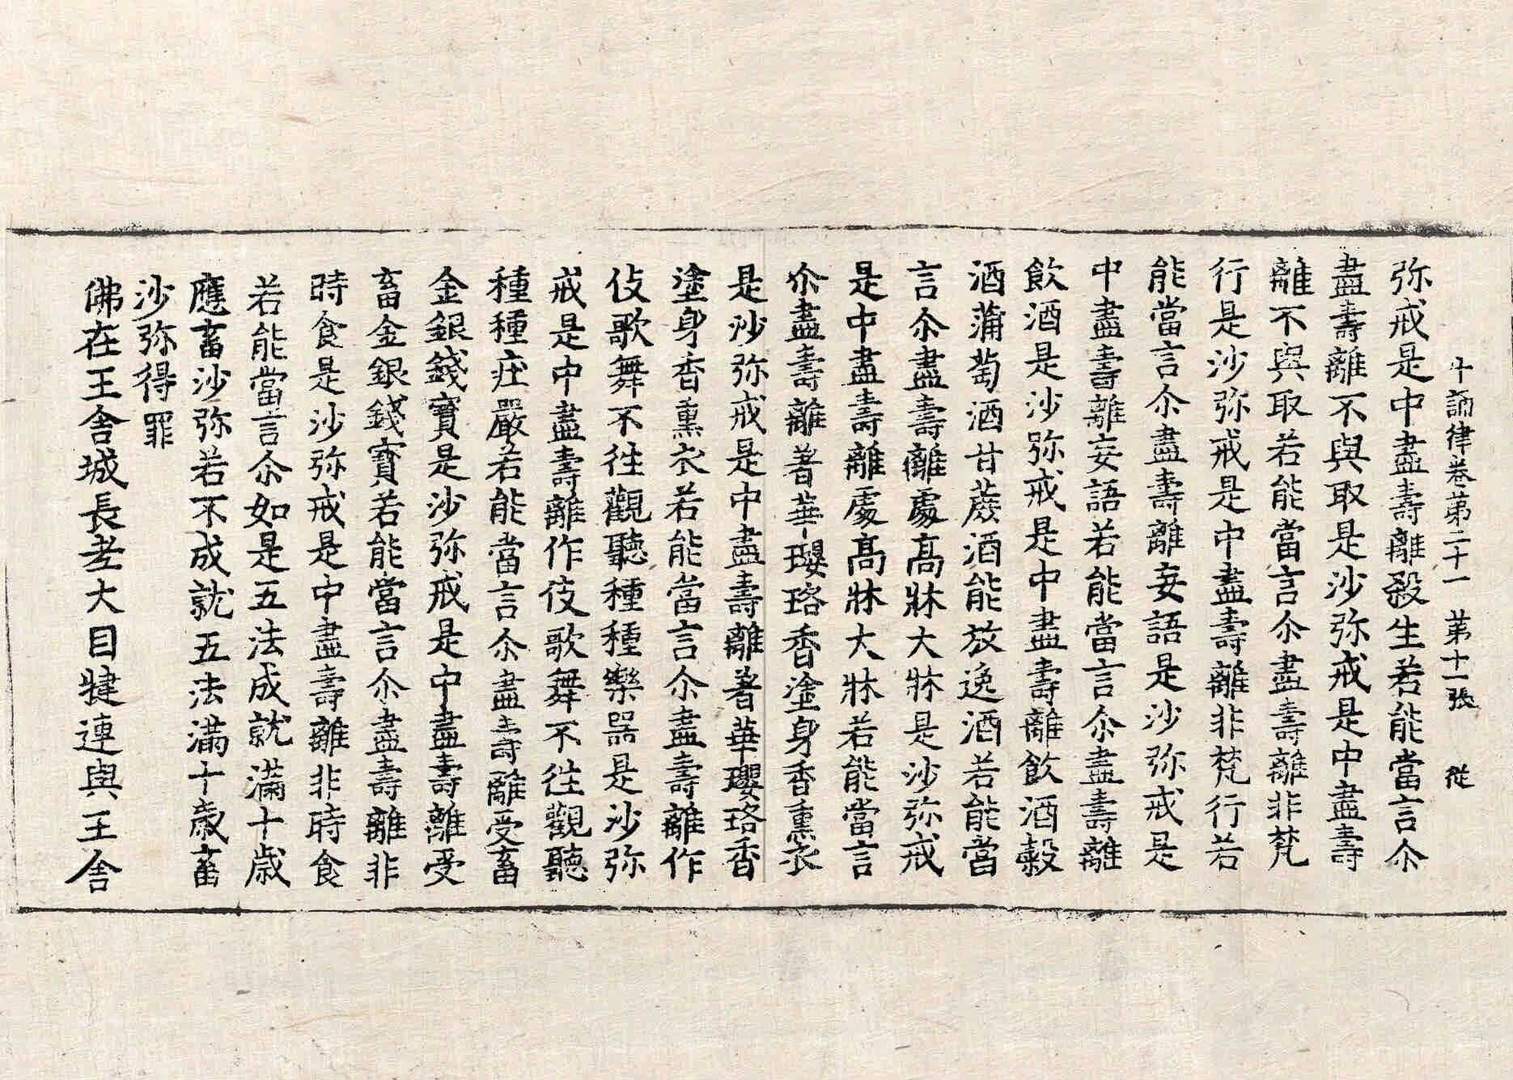 十誦律卷第二十一　第十一張　從
弥戒是中盡壽離殺生若能當言尒
盡壽離不與取是沙弥戒是中盡壽
離不與取若能當言尒盡壽離非梵
行是沙弥戒是中盡壽離非梵行若
能當言尒盡壽離妄語是沙弥戒是
中盡壽離妄語若能當言尒盡壽離
飲酒是沙弥戒是中盡壽離飲酒穀
酒蒲萄酒甘蔗酒能放逸酒若能當
言尒盡壽離處高牀大牀是沙弥戒
是中盡壽離處高牀大牀若能當言
尒盡壽離著華瓔珞香塗身香熏衣
是沙弥戒是中盡壽離著華瓔珞香
塗身香熏衣若能當言尒盡壽離作
伎歌舞不往觀聽種種樂器是沙弥
戒是中盡壽離作伎歌舞不往觀聽
種種庄嚴若能當言尒盡壽離受畜
金銀錢寶是沙弥戒是中盡壽離受
畜金銀錢寶若能當言尒盡壽離非
時食是沙弥戒是中盡壽離非時食
若能當言尒如是五法成就滿十歲
應畜沙弥若不成就五法滿十歲畜
沙弥得罪
佛在王舍城長老大目揵連與王舍